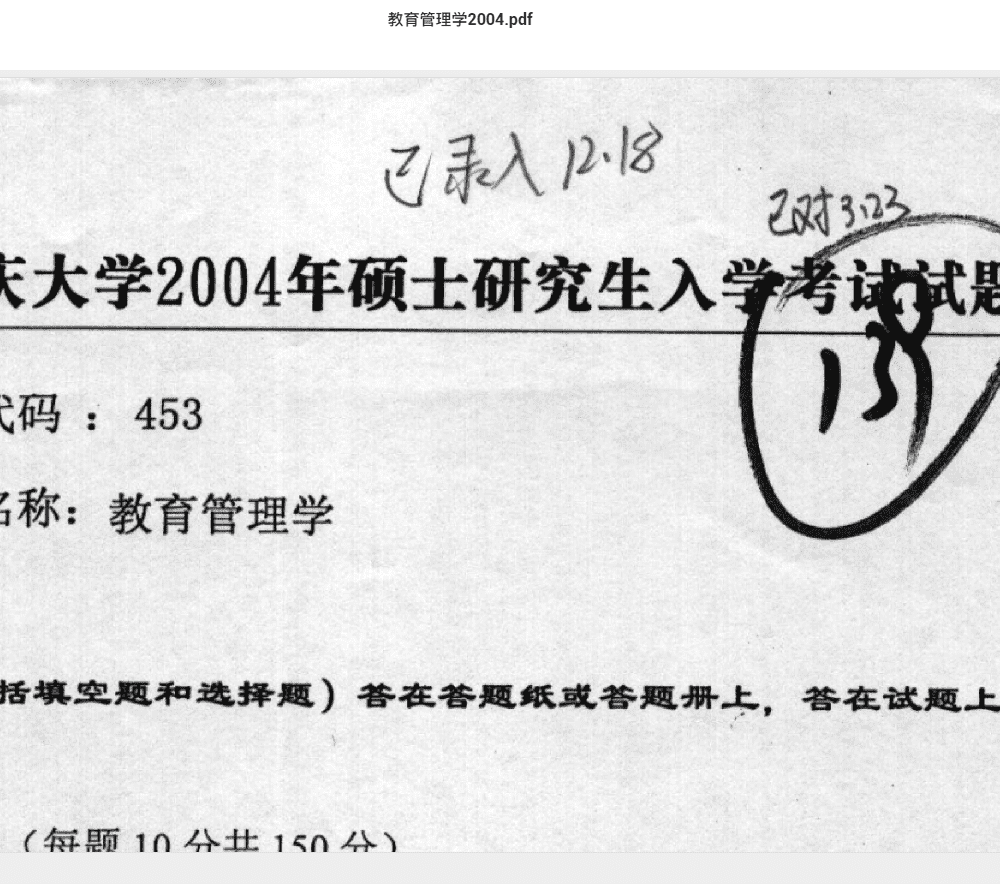 教育管理学2004.pdf
已录入 12.18
已对 3.23
庆大学2004年硕士研究生入学考试试题
138
代码 ： 453
名称： 教育管理学
括填空题和选择题）答在答题纸或答题册上，答在试题上
（每题 10 分共 150 分）